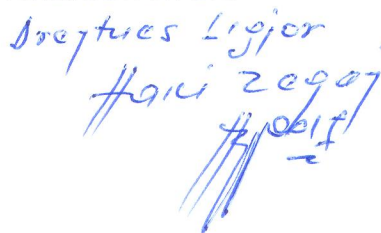 Drejtues Ligjor
Haki Zegaj